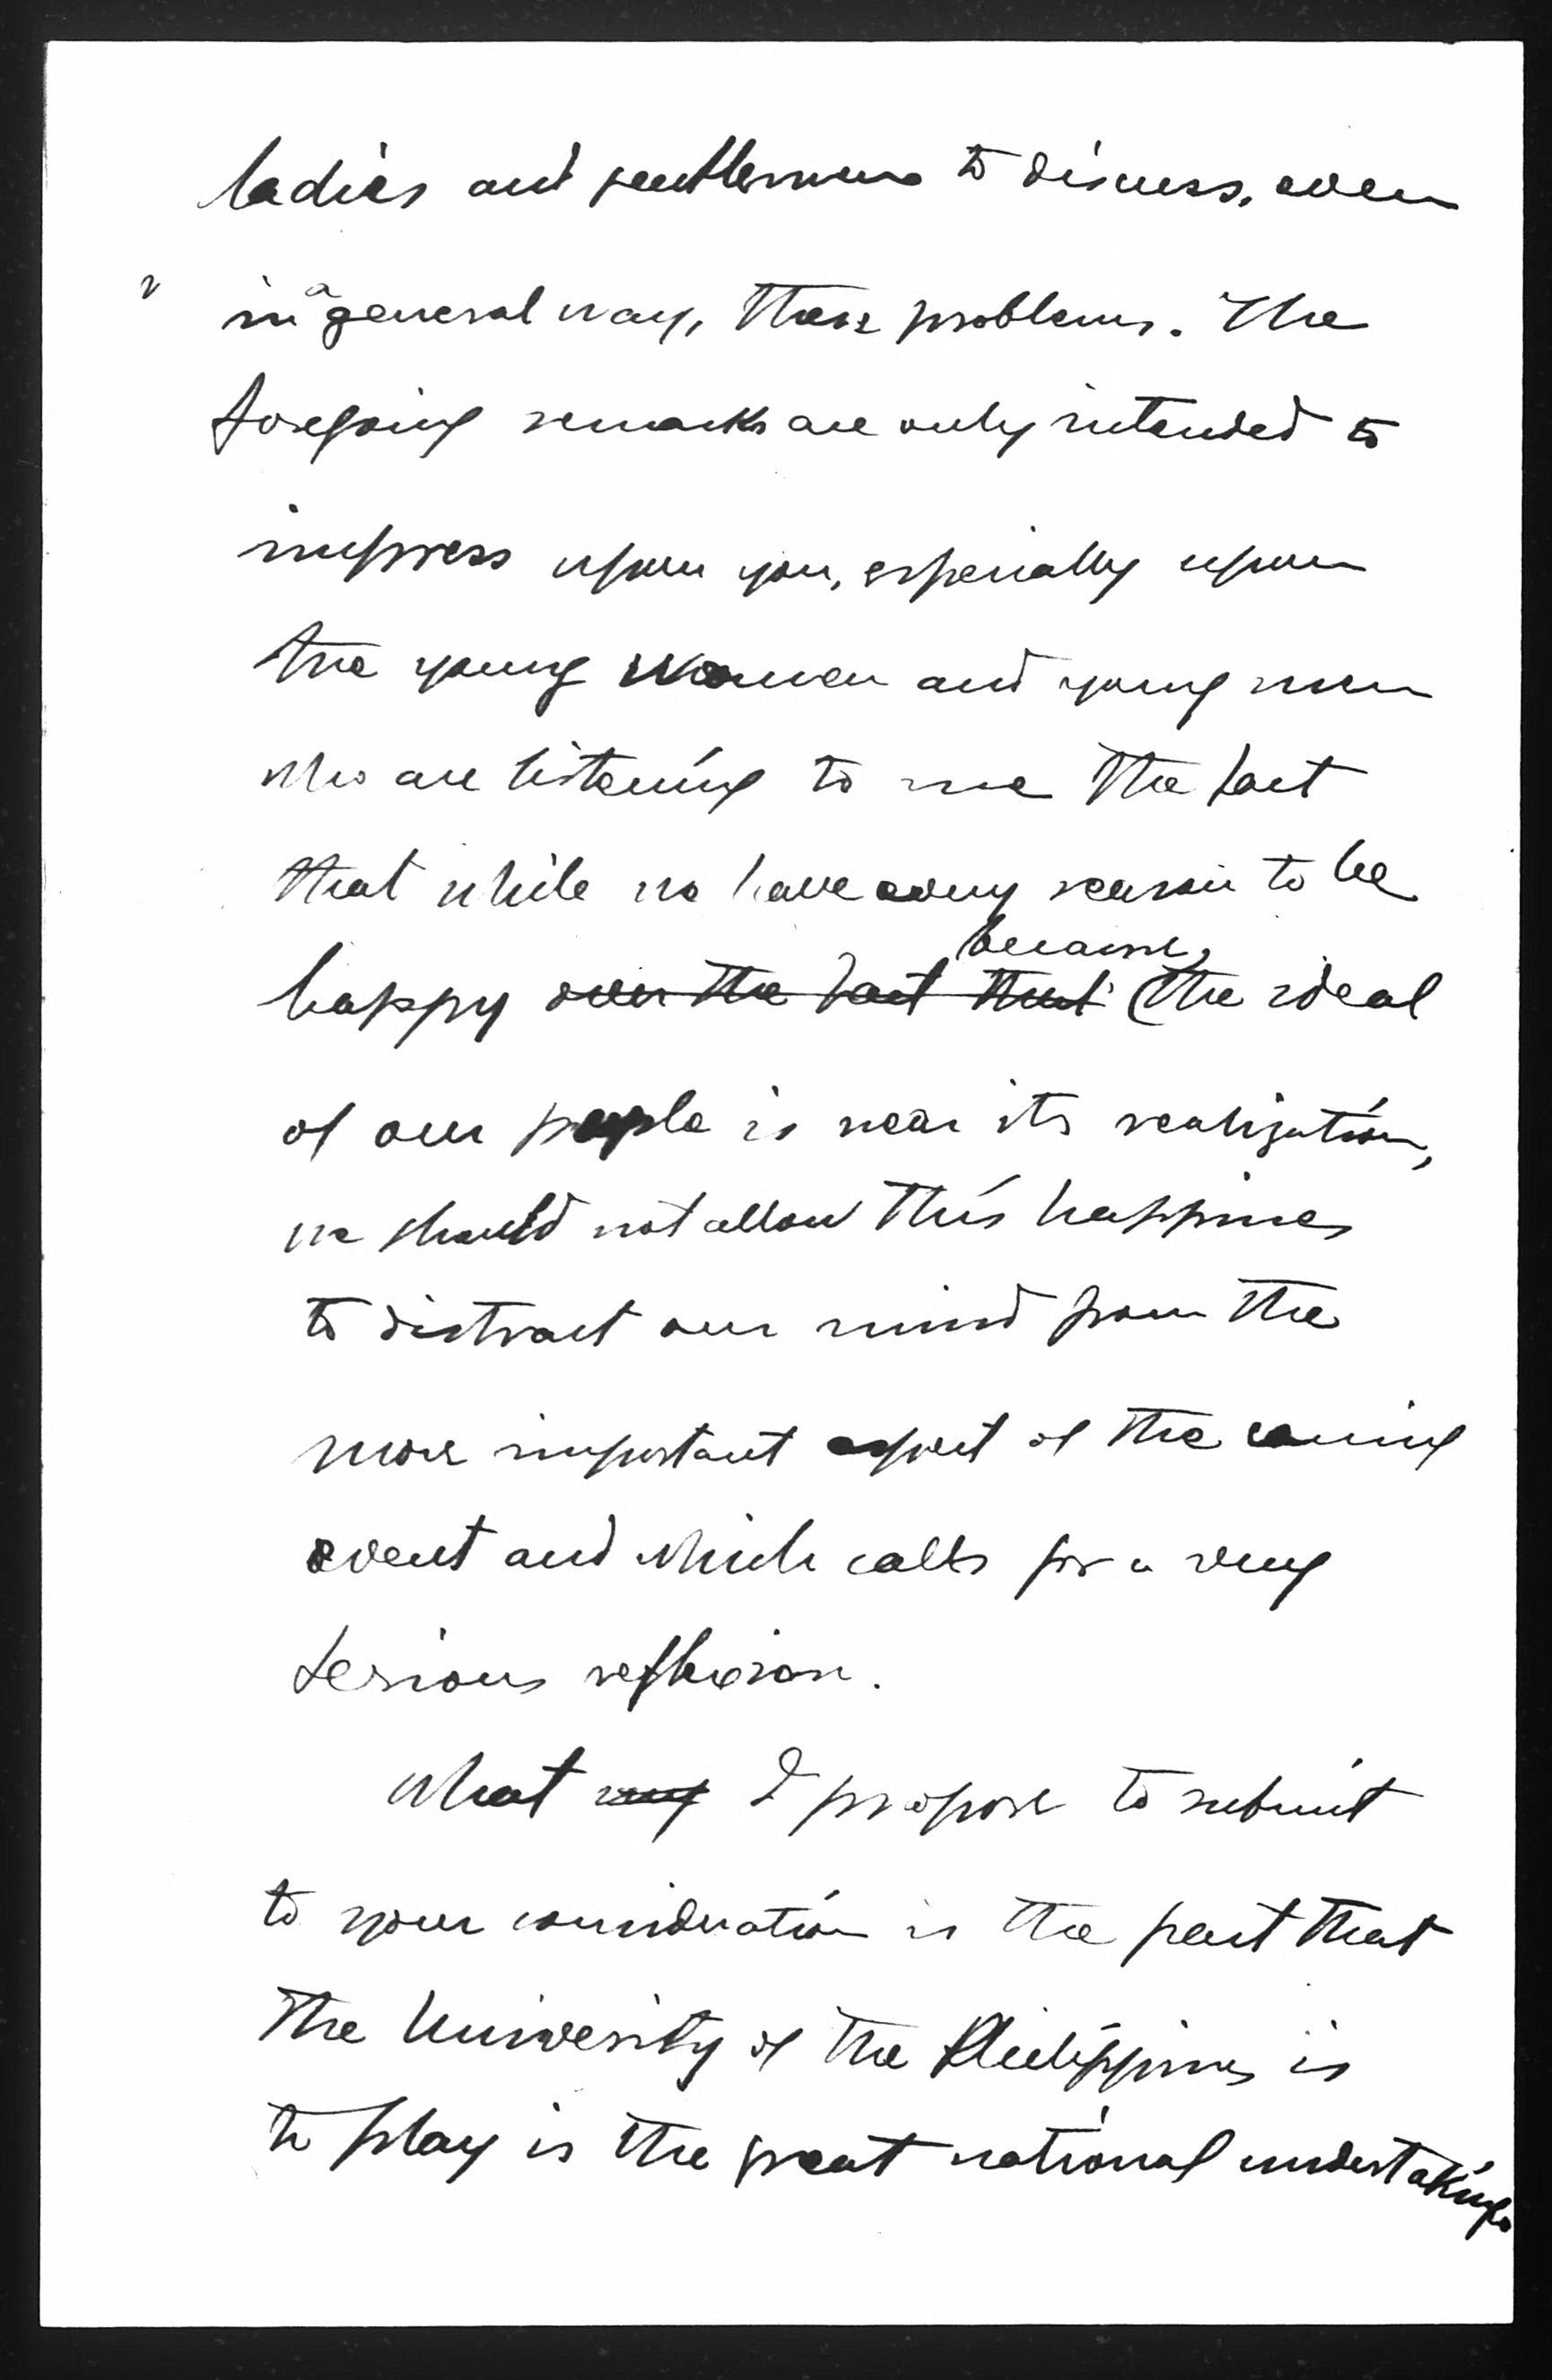 ladies and gentlemen to discuss, even
in a general way, these problems. The
foregoing remarks are only intended to
impress upon you, especially upon
the young women and young men
who are listening to me the fact
that while we have every reason to be
happy over the fact that because, (the ideal
of our people is near its realization,
we should not allow this happines
to distract our mind from the
more important aspect of the coming
event and which calls for a very
serious reflexion.
What my I propose to submit
to your consideration is the part that
the University of the Philippines is
to play is the great national undertaking.